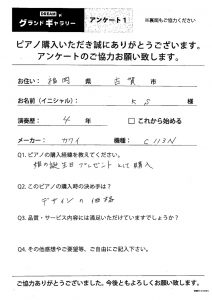 グランドギャラリー アンケート1 ※裏面もご協力ください
ピアノ購入いただき誠にありがとうございます。
アンケートのご協力お願い致します。
お住い： 福岡 県 古賀 市
お名前(イニシャル)： K S 様
演奏歴： 4 年 □ これから始める
メーカー： カワイ 機種： C113N
Q1. ピアノの購入経緯を教えてください。
娘の誕生日プレゼントとして購入
Q2. このピアノの購入時の決め手は？
デザインの価格
Q3. 品質・サービス内容には満足いただけていますでしょうか？
Q4. その他感想やご要望等、ご自由にご記入下さい。
ご協力ありがとうございました。今後ともよろしくお願い致します。